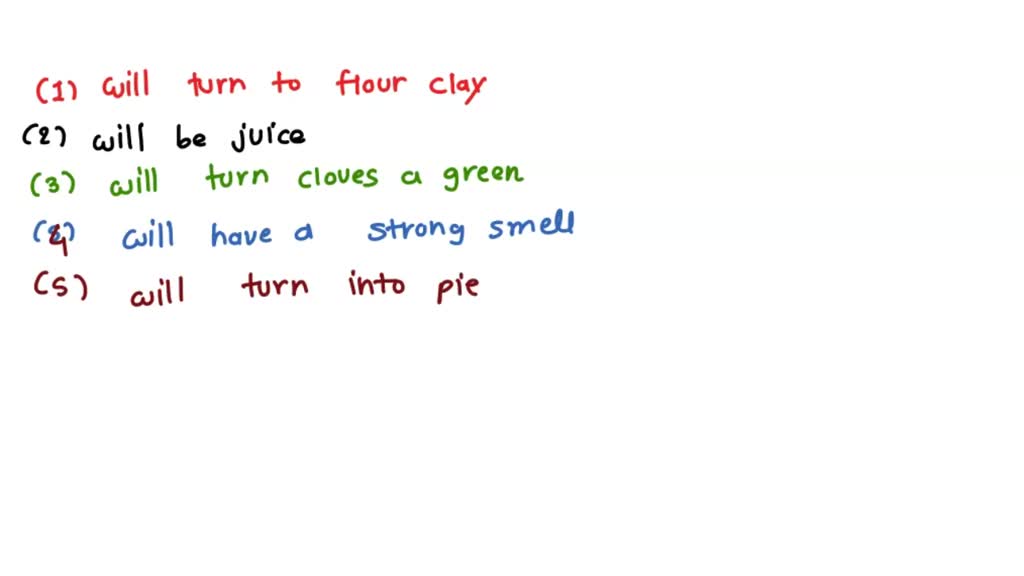 (1) will turn to flour clay
(2) will be juice
(3) will turn cloves a green
(4) will have a strong smell
(5) will turn into pie